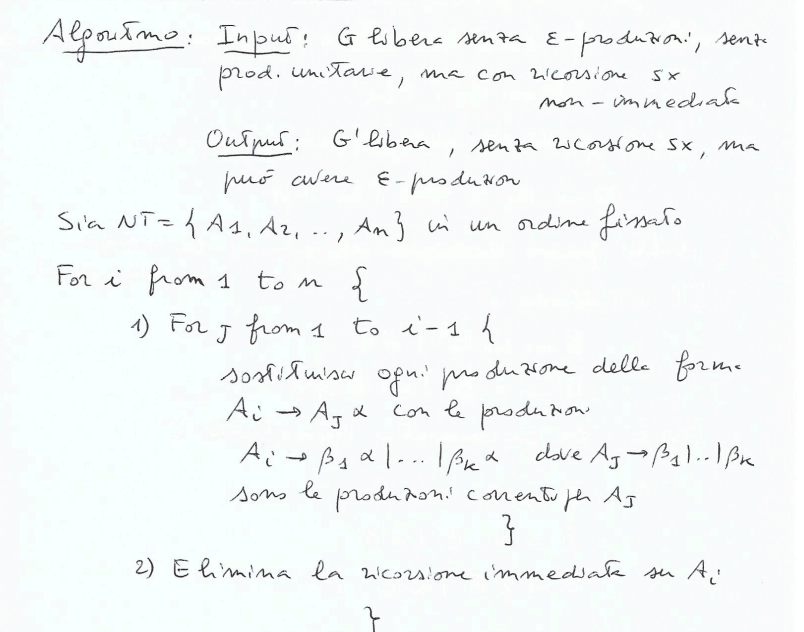 Algoritmo: Input: G libera senza ε-produzioni, senza
prod. unitarie, ma con ricorsione sx
non-immediata
Output: G' libera, senza ricorsione sx, ma
può avere ε-produzion
Sia NT = { A1, A2, .., An } in un ordine fissato
For i from 1 to n {
1) For J from 1 to i-1 {
sostituisci ogni produzione della forma
Ai → AJ α con le produzioni
Ai → β1 α | ... | βk α dove AJ → β1 | .. | βk
sono le produzioni correnti per AJ
}
2) Elimina la ricorsione immediata su Ai
}